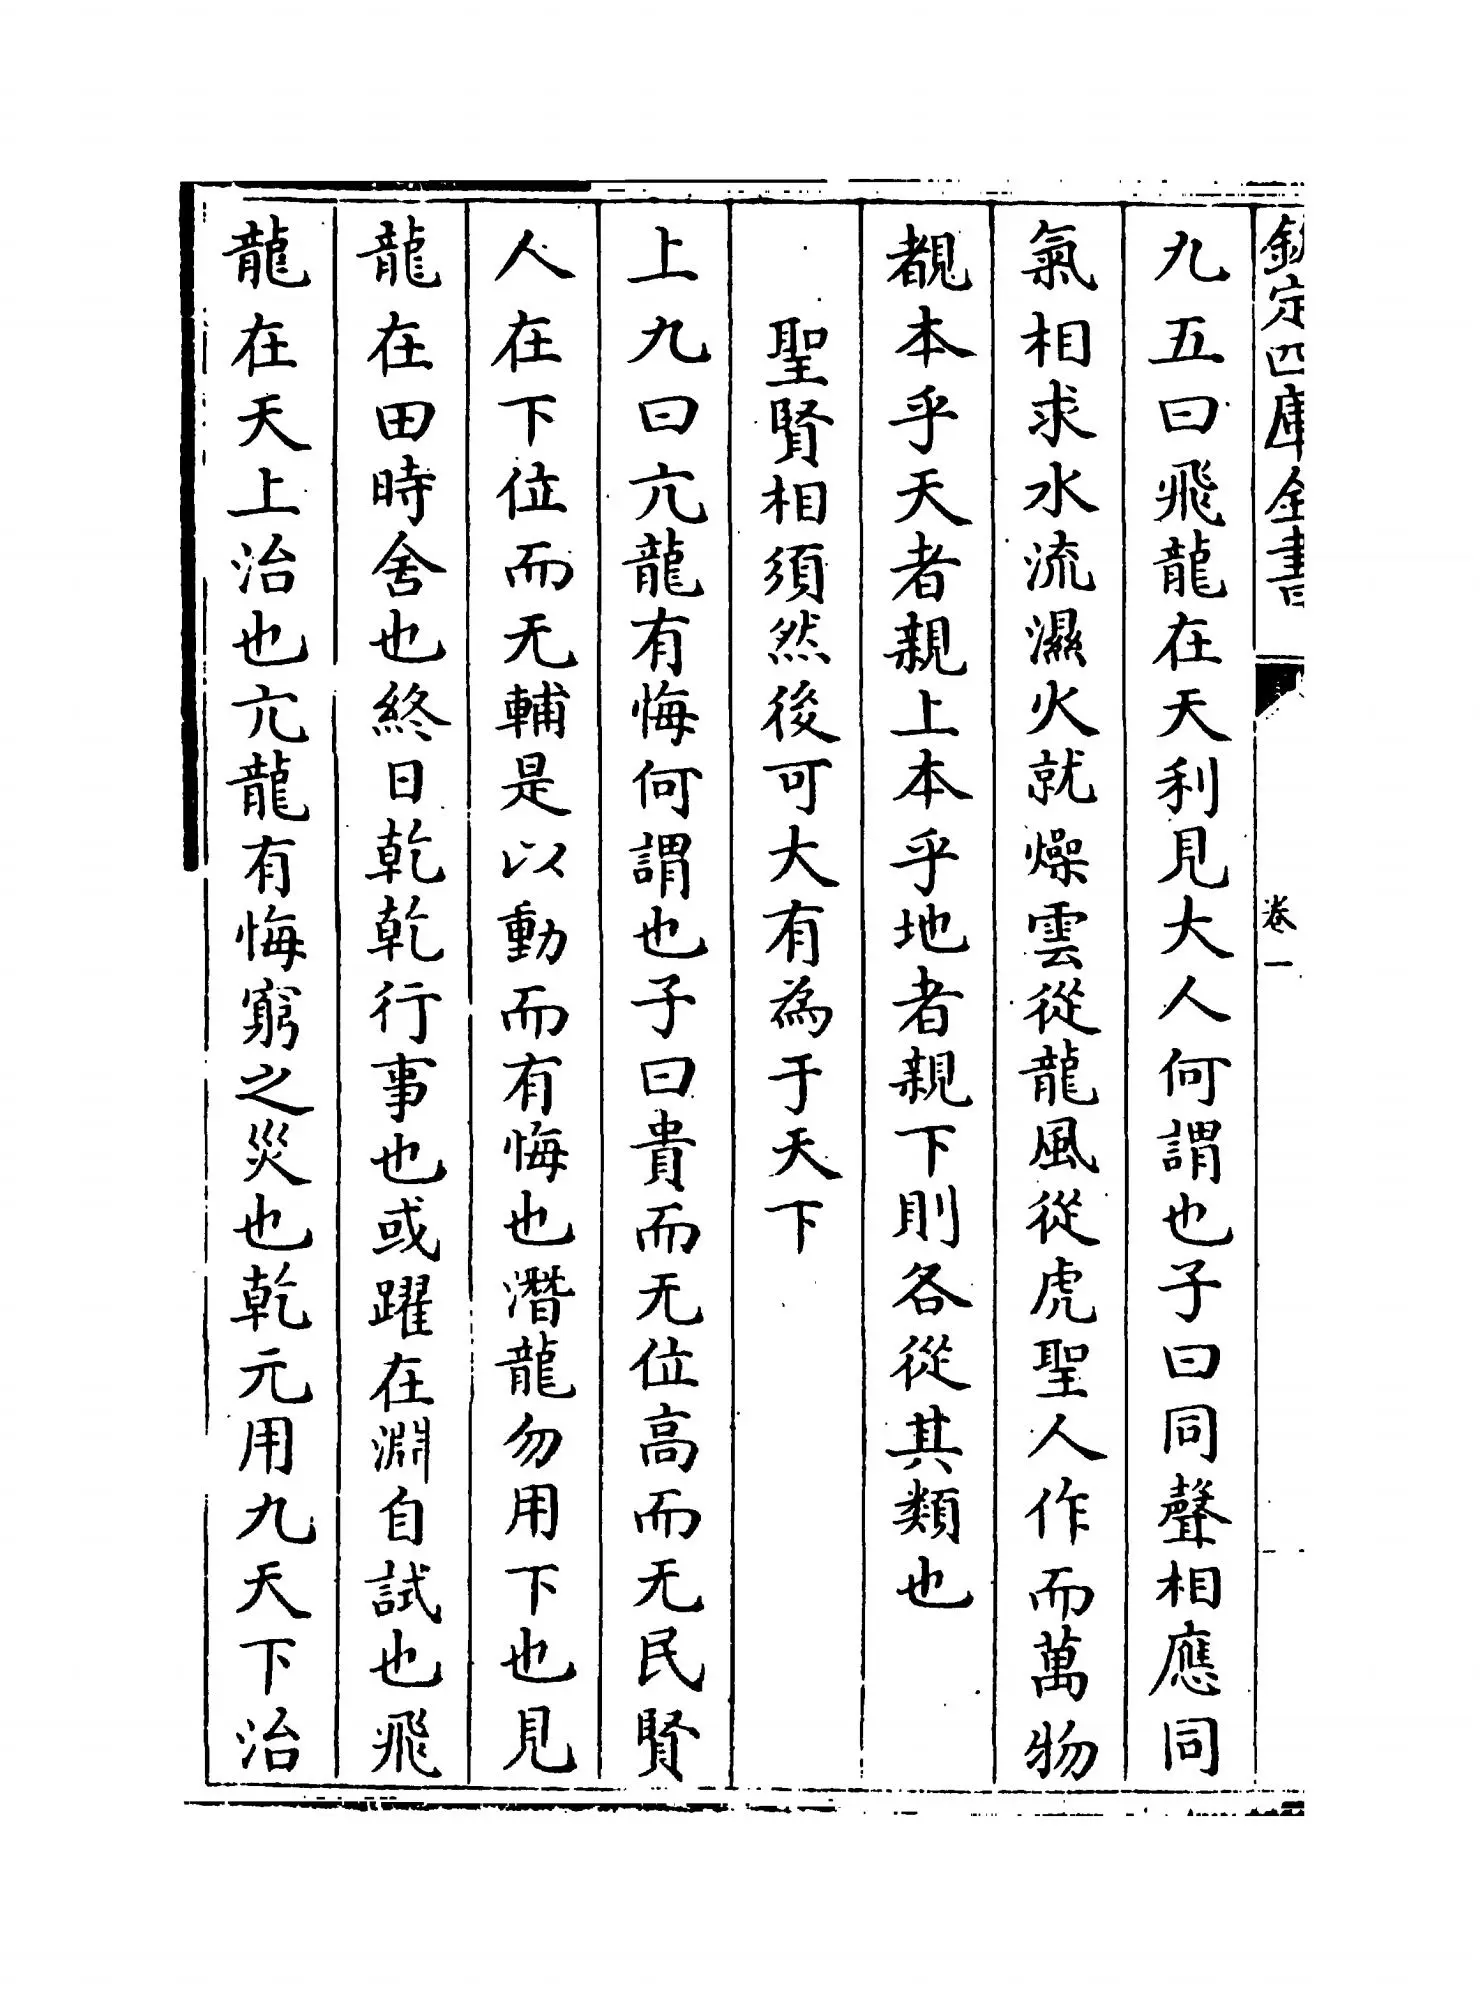 欽定四庫全書
卷一
九五曰飛龍在天利見大人何謂也子曰同聲相應同
氣相求水流濕火就燥雲從龍風從虎聖人作而萬物
覩本乎天者親上本乎地者親下則各從其類也
聖賢相須然後可大有為于天下
上九曰亢龍有悔何謂也子曰貴而无位高而无民賢
人在下位而无輔是以動而有悔也潛龍勿用下也見
龍在田時舍也終日乾乾行事也或躍在淵自試也飛
龍在天上治也亢龍有悔窮之災也乾元用九天下治